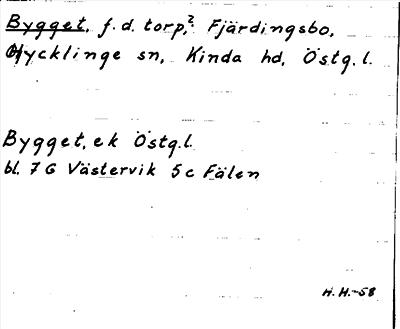 Bygget, f.d. torp,? Fjärdingsbo,
Hycklinge sn, Kinda hd, Östg. l.
Bygget, ek Östg.l.
bl. 7 G Västervik 5c Fälen
H. H. -58